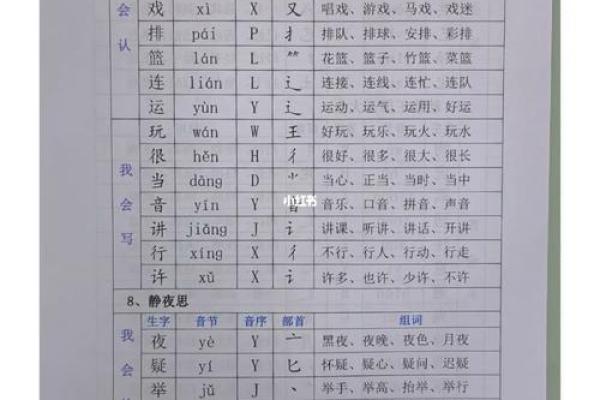 会 戏 xì X 又 唱戏、游戏、马戏、戏迷
认 排 pái P 扌 排队、排球、安排、彩排
篮 lán L ⺮ 花篮、篮子、竹篮、菜篮
连 lián L 辶 连接、连线、连忙、连队
运 yùn Y 辶 运动、运气、运用、好运
玩 wán W 王 好玩、玩乐、玩火、玩水
很 hěn H 彳 很好、很多、很大、很长
我 当 dāng D ⺌ 当心、正当、当时、当中
会 音 yīn Y 音 音乐、口音、拼音、声音
写 讲 jiǎng J 讠 讲课、听讲、讲话、开讲
行 xíng X 彳 不行、行人、行动、行走
许 xǔ X 讠 许多、也许、少许、不许
小红书
8、静夜思
生字 音节 音序 部首 组词
我 夜 yè Y 亠 黑夜、夜晚、夜色、月夜
会 疑 yí Y 匕 怀疑、疑心、疑问、迟疑
举 jǔ J 丶 举手、举高、抬举、举行